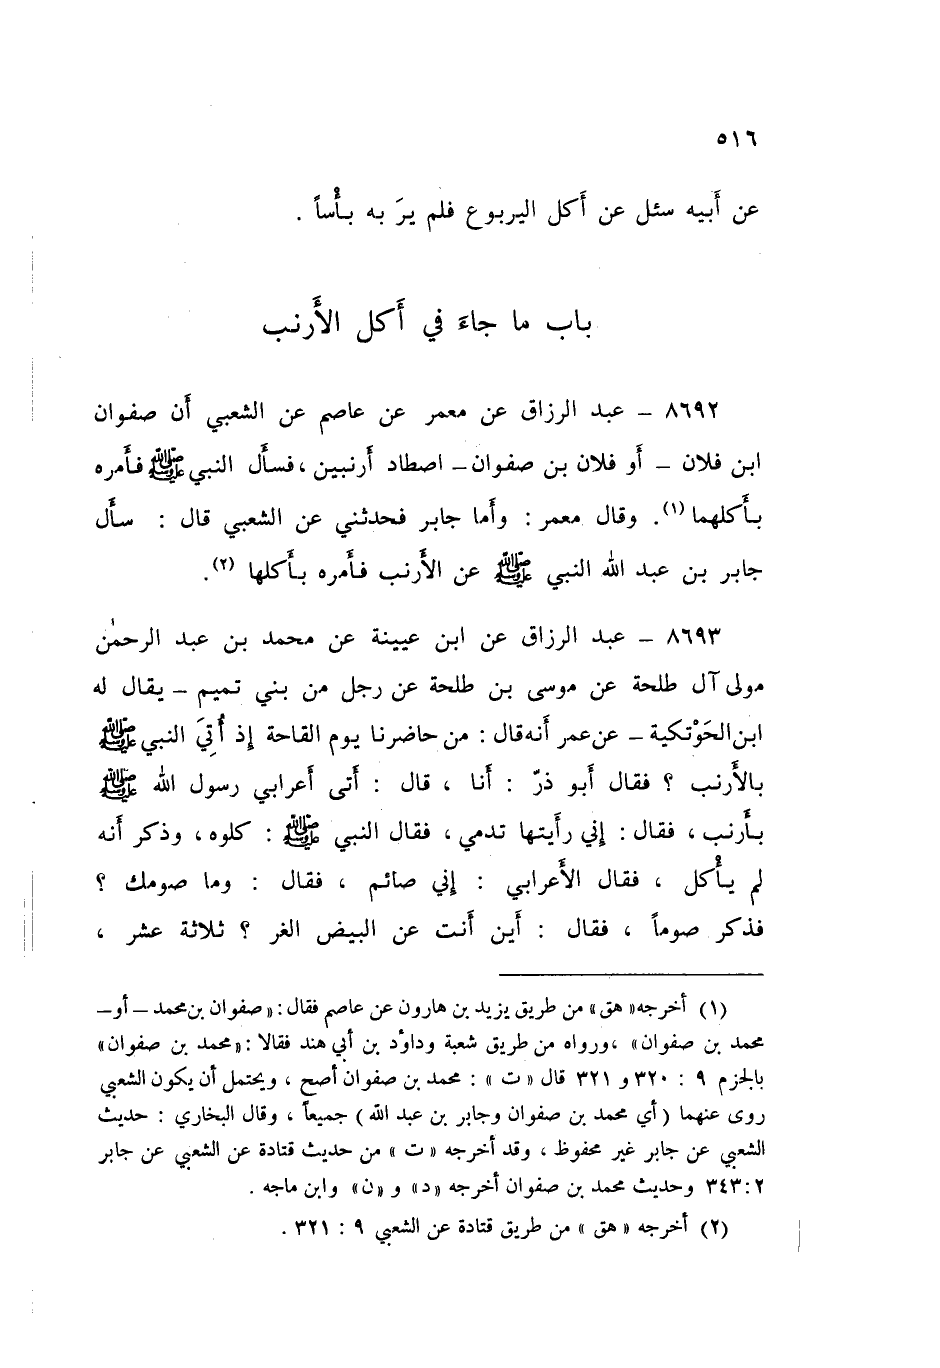 ٥١٦
عن أَبيه سئل عن أَكل اليربوع فلم يرَ به بـأْساً .
باب ما جاءَ في أَكل الأَرنب
٨٦٩٢ – عبد الرزاق عن معمر عن عاصم عن الشعبي أَن صفوان
ابن فلان – أَو فلان بن صفوان – اصطاد أَرنبين ، فسأَل النبي ﷺ فـأَمره
بـأَكلهما (١). وقال معمر : وأَما جابر فحدثني عن الشعبي قال : سأَل
جابر بن عبد الله النبي ﷺ عن الأَرنب فـأَمره بـأَكلها (٢).
٨٦٩٣ – عبد الرزاق عن ابن عيينة عن محمد بن عبد الرحمٰن
مولى آل طلحة عن موسى بن طلحة عن رجل من بني تميم – يقال له
ابن الحَوْتكية – عن عمر أَنه قال : من حاضرنا يوم القاحة إِذ أُتِيَ النبي ﷺ
بالأَرنب ؟ فقال أَبو ذرّ : أَنا ، قال : أَتى أَعرابي رسول الله ﷺ
بـأَرنب ، فقال : إِني رأَيتها تدمي ، فقال النبي ﷺ : كلوه ، وذكر أَنه
لم يـأْكل ، فقال الأَعرابي : إِني صائم ، فقال : وما صومك ؟
فذكر صوماً ، فقال : أَين أَنت عن البيض الغر ؟ ثلاثة عشر ،
(١) أخرجه « هق » من طريق يزيد بن هارون عن عاصم فقال : « صفوان بن محمد – أو–
محمد بن صفوان » ، ورواه من طريق شعبة وداوٗد بن أبي هند فقالا : « محمد بن صفوان »
بالجزم ٩ : ٣٢٠ و ٣٢١ قال « ت » : محمد بن صفوان أصح ، ويحتمل أن يكون الشعبي
روى عنهما ( أي محمد بن صفوان وجابر بن عبد الله ) جميعاً ، وقال البخاري : حديث
الشعبي عن جابر غير محفوظ ، وقد أخرجه « ت » من حديث قتادة عن الشعبي عن جابر
٢ : ٣٤٣ وحديث محمد بن صفوان أخرجه «د» و «ن» وابن ماجه .
(٢) أخرجه « هق » من طريق قتادة عن الشعبي ٩ : ٣٢١ .